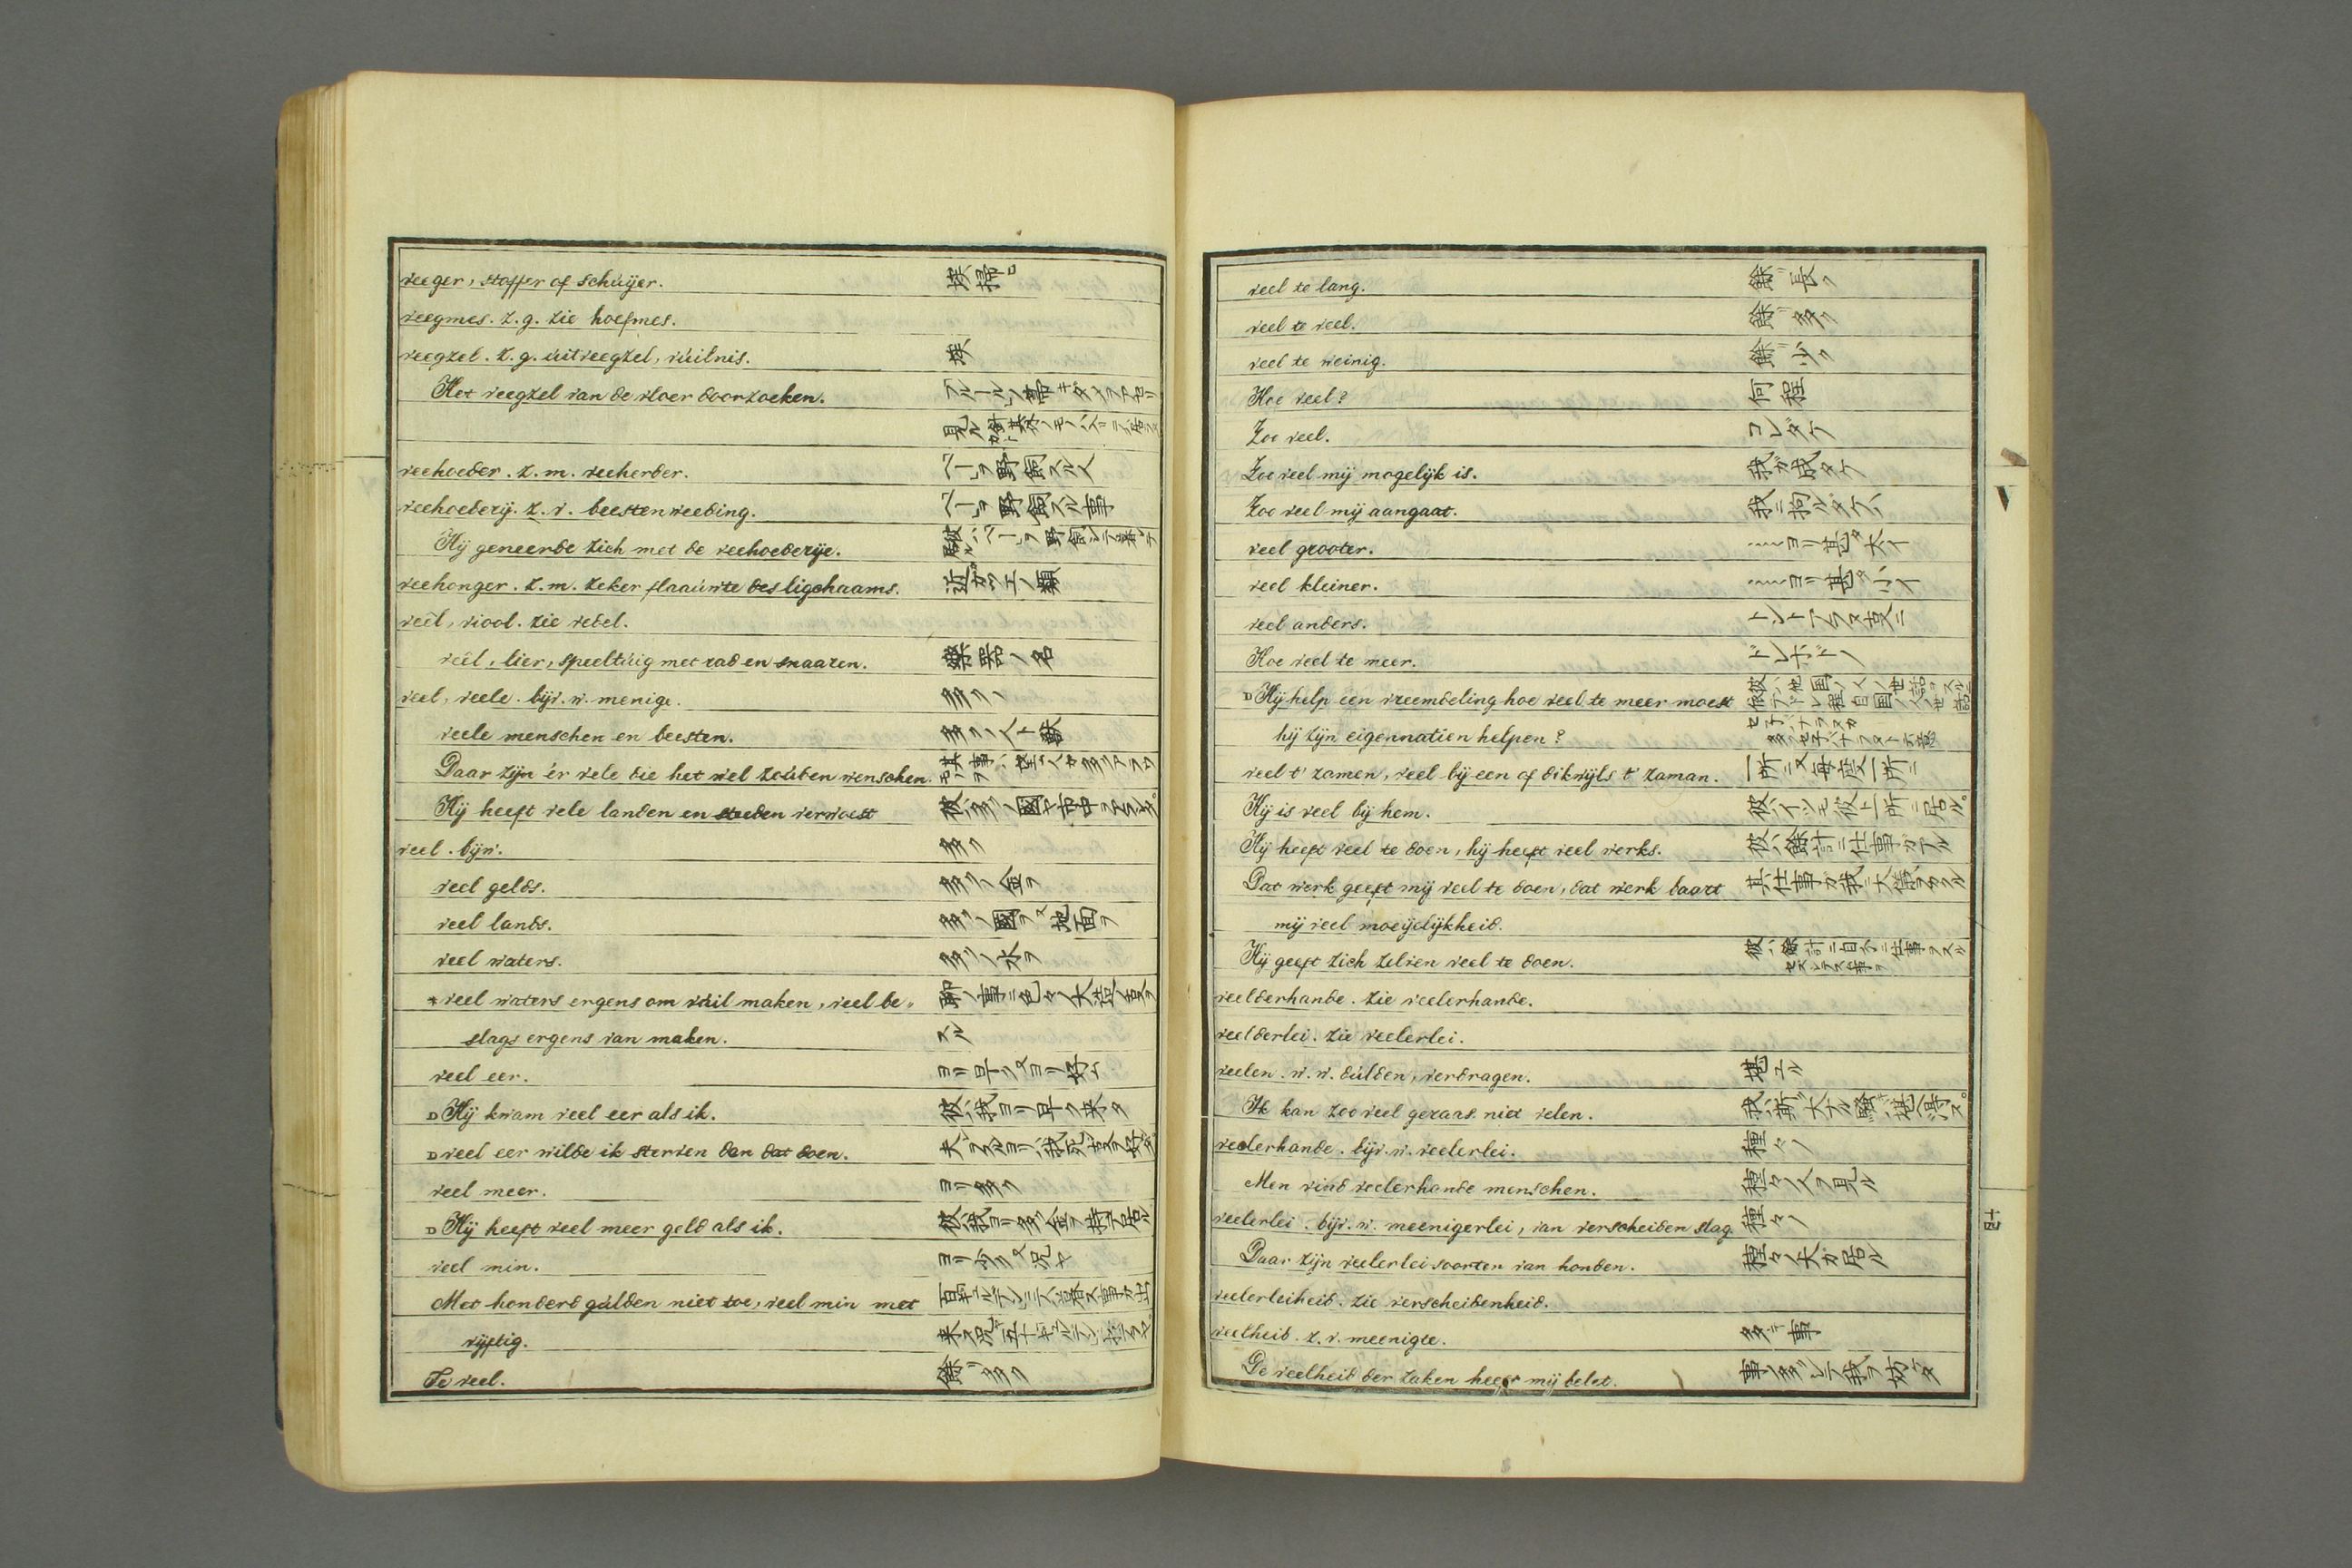 veeger, stoffer of schuijer. 埃掃
veegmes. z.g. zie hoefmes.
veegzel. z.g. uitveegzel, vuilnis. 埃
Het veegzel van de vloer doorzoeken.
veehoeder. z.m. veeherder. ベーレヲ野飼スル人
veehoederij. z.v. beestenweeding. ベーレヲ野飼スル事
Hij geneerde zich met de veehoederije. 彼ハベーレヲ野飼シテ暮シテ居ル
veehonger. z.m. zeker flaauwte des ligchaams.
veêl, viool. zie vedel.
veêl, lier, speeltuig met rad en snaaren. 樂器ノ名
veel, veele. bijv. w. menige. 多クノ
veele menschen en beesten. 多クノ人ト獣
Daar zijn 'er vele die het wel zouden wenschen.
Hij heeft vele landen en steeden verwoest 彼ハ多クノ國ヤ市中ヲアラシタ
veel. bijw. 多ク
veel gelds. 多クノ金ヲ
veel lands. 多クノ國ヲ又地面ヲ
veel waters. 多クノ水ヲ
* veel waters ergens om vuil maken, veel be„
slags ergens van maken. スル
veel eer. ヨリ早ク又ヨリ好ム
Hij kwam veel eer als ik. 彼ハ我ヨリ早ク来タ
veel eer wilde ik sterven dan dat doen.
veel meer. ヨリ多ク
Hij heeft veel meer geld als ik. 彼ハ我ヨリ多ク金ヲ持テ居ル
veel min. ヨリ少ク又況ヤ
Met honderd gulden niet toe, veel min met
vijftig.
Te veel. 餘リ多ク
veel te lang. 餘リ長ク
veel te veel. 餘リ多ク
veel te weinig. 餘リ少ク
Hoe veel? 何程
Zoo veel. コレダケ
Zoo veel mij mogelijk is. 我ガ成タケ
Zoo veel mij aangaat. 我ニ拘ルダケハ
veel grooter. ヨリ甚ダ大イ
veel kleiner. ヨリ甚ダ小イ
veel anders.
Hoe veel te meer. ドレホドノ
Hij help een vreemdeling hoe veel te meer moest
hij zijn eigen natien helpen?
veel t' zamen, veel bij een of dikwijls t' zaman. 一所ニ又毎度一所ニ
Hij is veel bij hem. 彼ハイツモ彼ト一所ニ居ル
Hij heeft veel te doen, hij heeft veel werks. 彼ハ餘計ニ仕事ガアル
Dat werk geeft mij veel te doen, dat werk baart
mij veel moeijelijkheid.
Hij geeft zich zelven veel te doen.
veelderhande. zie veelerhande.
veelderlei. zie veelerlei.
veelen. w.w. dulden, verdragen. 堪エル
Ik kan zoo veel geraas niet velen.
veelerhande. bijv. w. veelerlei. 種々ノ
Men vind veelerhande menschen. 種々ノ人ヲ見ル
veelerlei. bijv. w. meenigerlei, van verscheiden slag. 種々ノ
Daar zijn veelerlei soorten van honden. 種々ノ犬ガ居ル
veelerleiheid. zie verscheidenheid.
veelheid. z.v. meenigte. 多キ事
De veelheid der zaken heeft mij belet.
V